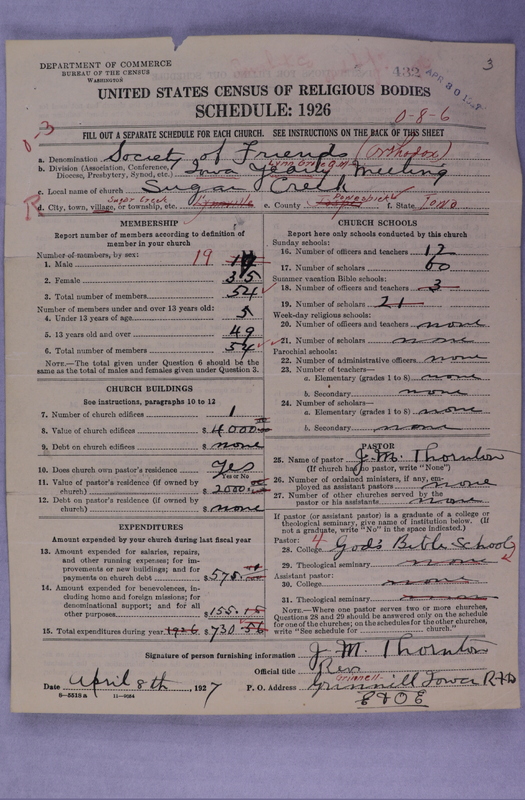 DEPARTMENT OF COMMERCE
BUREAU OF THE CENSUS
WASHINGTON
432
APR 30
3
UNITED STATES CENSUS OF RELIGIOUS BODIES
SCHEDULE: 1926
0-3
0-8-6
FILL OUT A SEPARATE SCHEDULE FOR EACH CHURCH. SEE INSTRUCTIONS ON THE BACK OF THIS SHEET
a. Denomination Society of Friends (Orthodox)
b. Division (Association, Conference, Diocese, Presbytery, Synod, etc.) Iowa Yearly Meeting
Lynn Grove Q.M.
c. Local name of church Sugar Creek
d. City, town, village, or township, etc. Sugar Creek Lynnville e. County Poweshiek Jasper f. State Iowa
MEMBERSHIP
Report number of members according to definition of
member in your church
Number of members, by sex:
1. Male 19
2. Female 35
3. Total number of members 54
Number of members under and over 13 years old:
4. Under 13 years of age 5
5. 13 years old and over 49
6. Total number of members 54
NOTE.—The total given under Question 6 should be the
same as the total of males and females given under Question 3.
CHURCH BUILDINGS
See instructions, paragraphs 10 to 12
7. Number of church edifices 1
8. Value of church edifices $ 4000
9. Debt on church edifices $ none
10. Does church own pastor's residence yes
Yes or No
11. Value of pastor's residence (if owned by
church) $ 2000.00
12. Debt on pastor's residence (if owned by
church) $ none
EXPENDITURES
Amount expended by your church during last fiscal year
13. Amount expended for salaries, repairs,
and other running expenses; for im-
provements or new buildings; and for
payments on church debt $ 575.
14. Amount expended for benevolences, in-
cluding home and foreign missions; for
denominational support; and for all
other purposes $ 155.
15. Total expenditures during year 1926 $ 730
CHURCH SCHOOLS
Report here only schools conducted by this church
Sunday schools:
16. Number of officers and teachers 12
17. Number of scholars 60
Summer vacation Bible schools:
18. Number of officers and teachers 3
19. Number of scholars 21
Week-day religious schools:
20. Number of officers and teachers none
21. Number of scholars none
Parochial schools:
22. Number of administrative officers none
23. Number of teachers—
a. Elementary (grades 1 to 8) none
b. Secondary none
24. Number of scholars—
a. Elementary (grades 1 to 8) none
b. Secondary none
PASTOR
25. Name of pastor J. M. Thornton
(If church has no pastor, write "None")
26. Number of ordained ministers, if any, em-
ployed as assistant pastors none
27. Number of other churches served by the
pastor or his assistants none
If pastor (or assistant pastor) is a graduate of a college or
theological seminary, give name of institution below. (If
not a graduate, write "No" in the space indicated.)
Pastor: 4
28. College God's Bible School
29. Theological seminary none
Assistant pastor:
30. College none
31. Theological seminary none
NOTE.—Where one pastor serves two or more churches,
Questions 28 and 29 should be answered only on the schedule
for one of the churches; on the schedules for the other churches,
write "See schedule for church."
Signature of person furnishing information J. M. Thornton
Official title Rev
Date April 8th, 1927 P. O. Address Grinnell Iowa
Grinnell
8—5518 a 11—9084